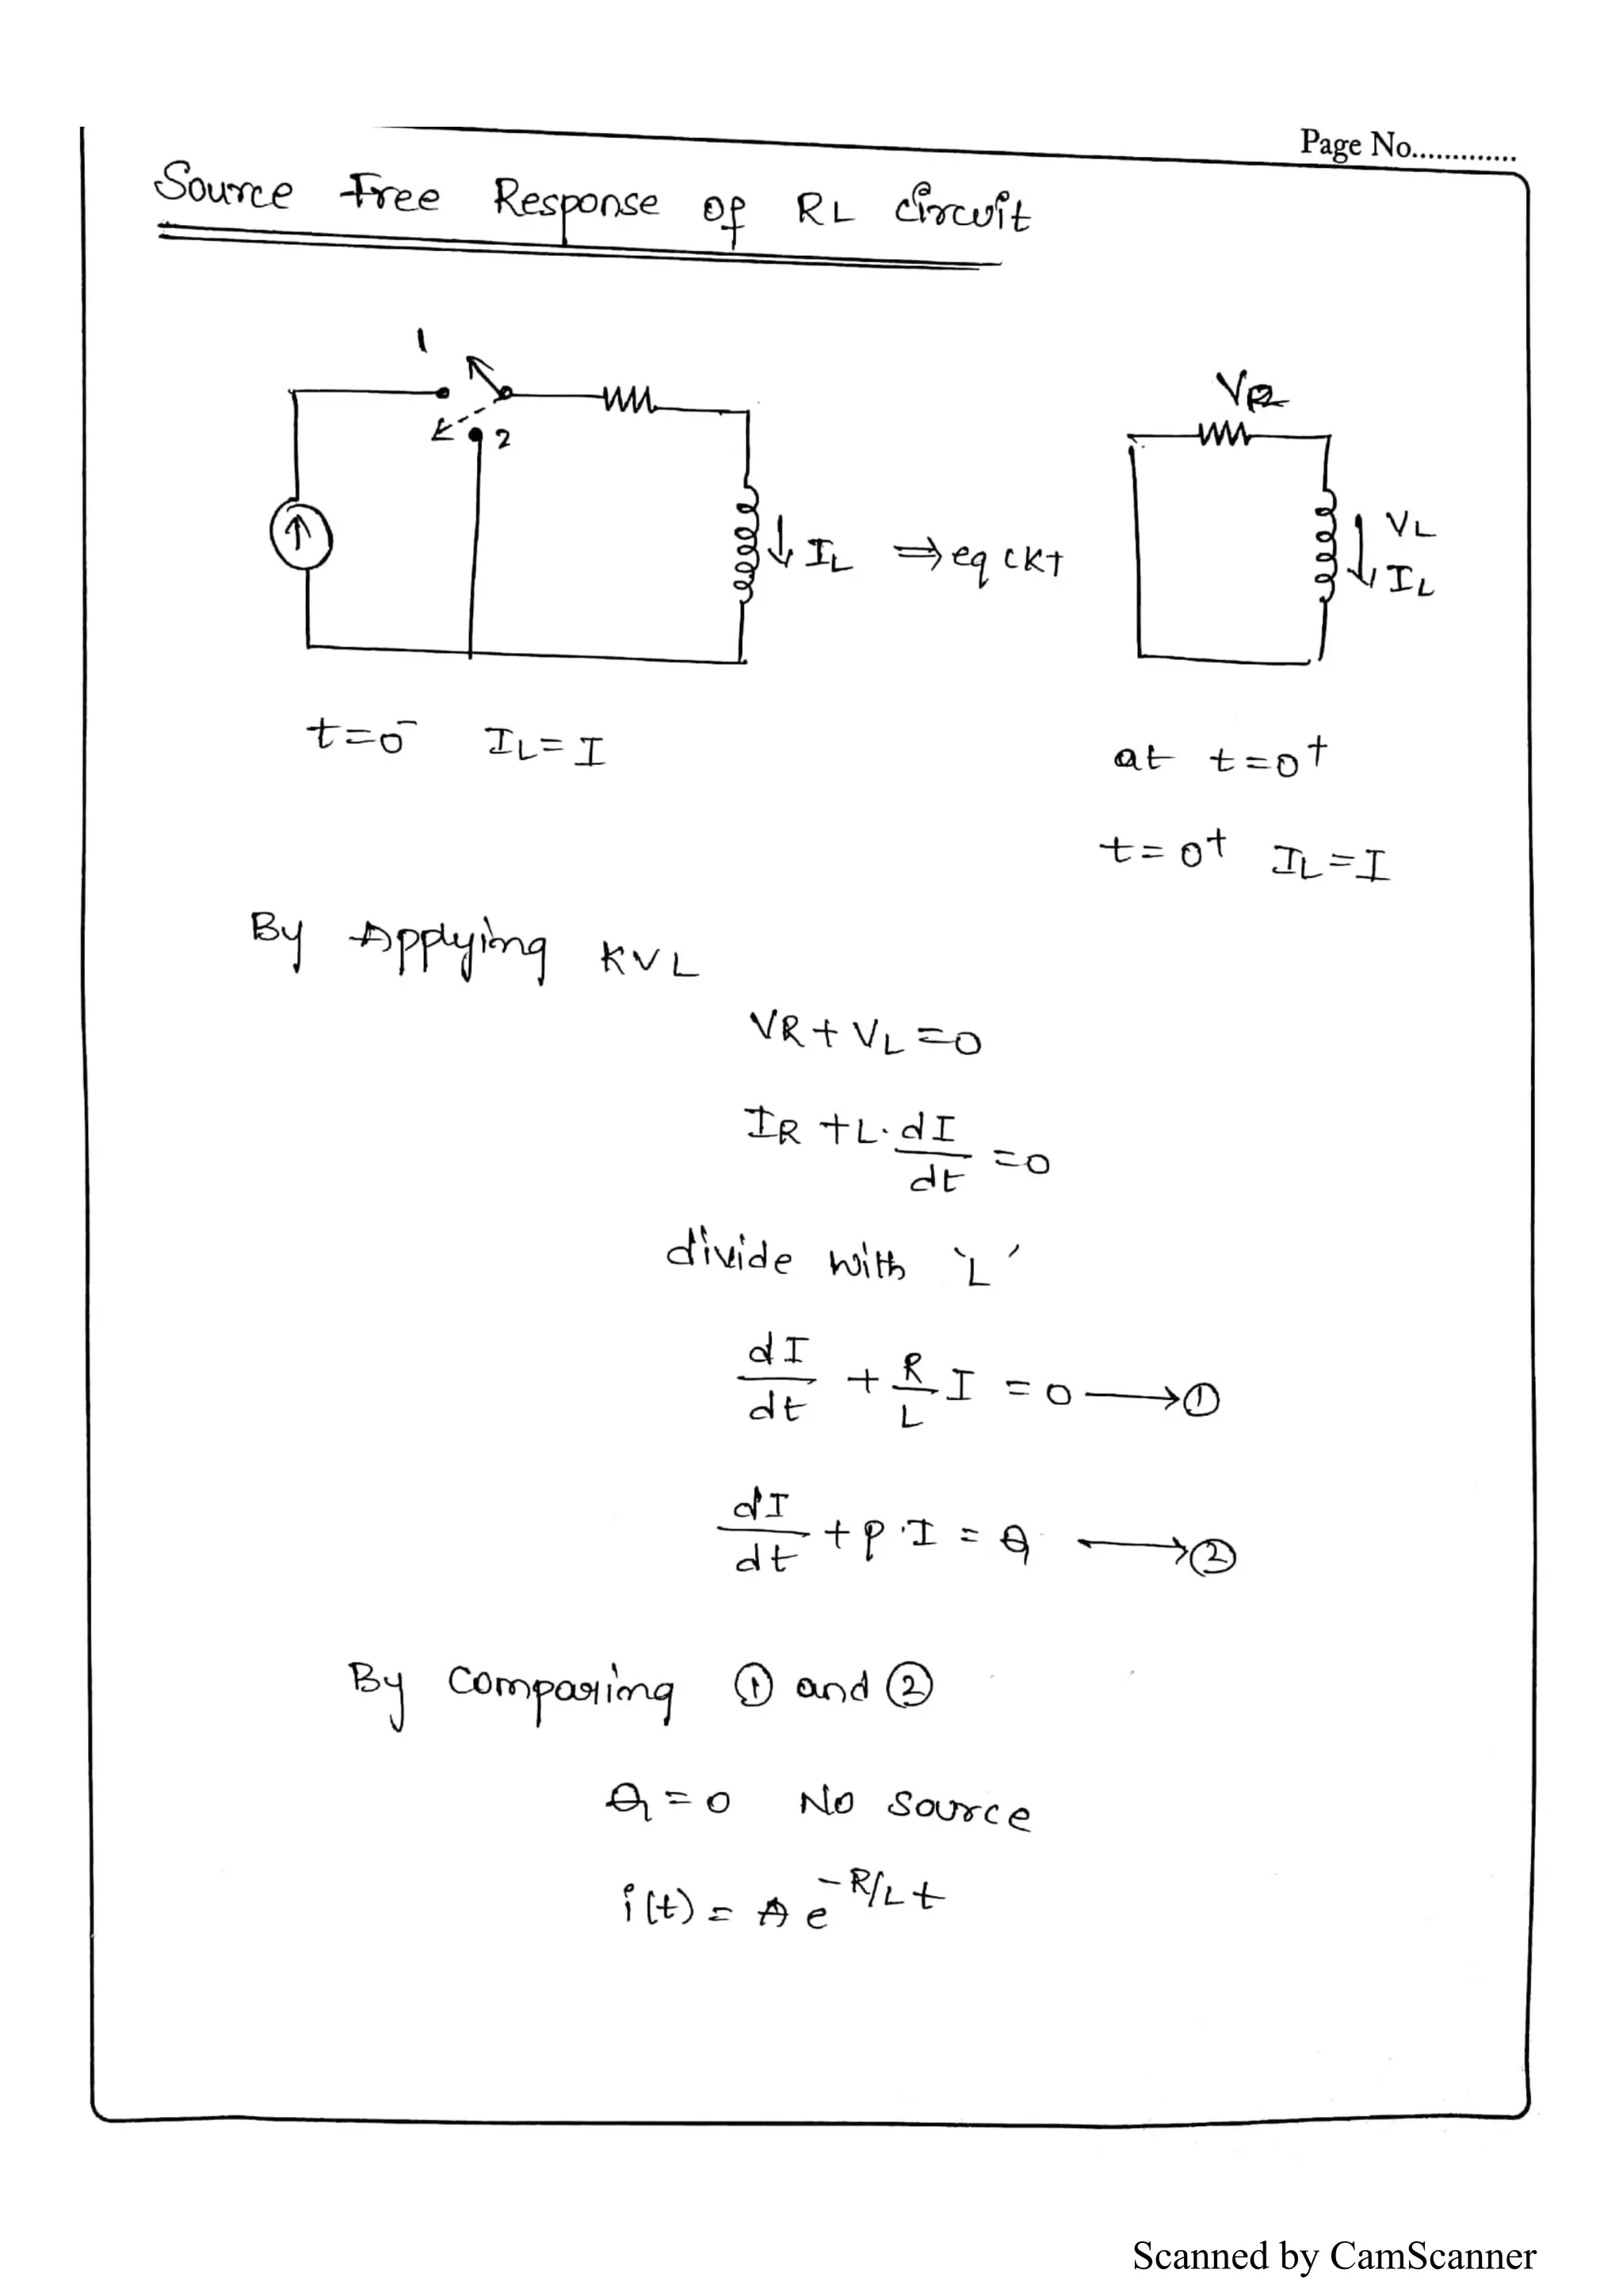 Page No.............
Source Free Response of RL circuit
1
2
IL
⇒ eq ckt
VR
VL
IL
t=0⁻ IL=I
at t=0⁺
t=0⁺ IL=I
By Applying KVL
VR+VL=0
IR +L.dI/dt =0
divide with 'L'
dI/dt + R/L I = 0 ⟶ ①
dI/dt + p.I = Q ⟶ ②
By Comparing ① and ②
Q=0 No source
i(t) = A e^-R/L t
Scanned by CamScanner